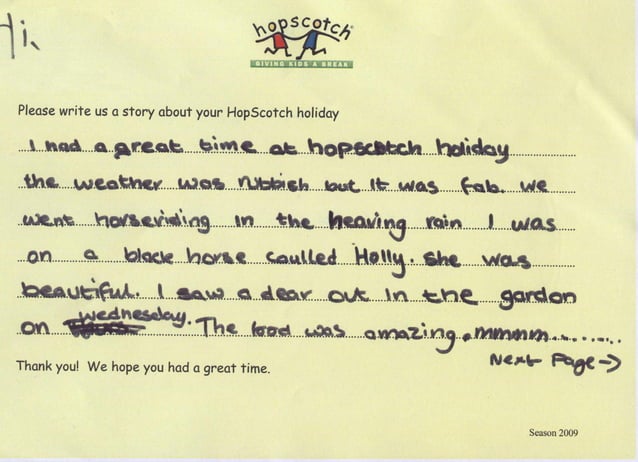 Hi,
hopscotch
GIVING KIDS A BREAK
Please write us a story about your HopScotch holiday
I had a great time at hopscotch holiday
the weather was rubbish but it was fab. We
went horseriding in the heaving rain I was
on a black horse caulled Holly. She was
beautiful. I saw a dear out in the gardon
on Wednesday. The food was amazing. mmmm.......
Next Page →
Thank you! We hope you had a great time.
Season 2009